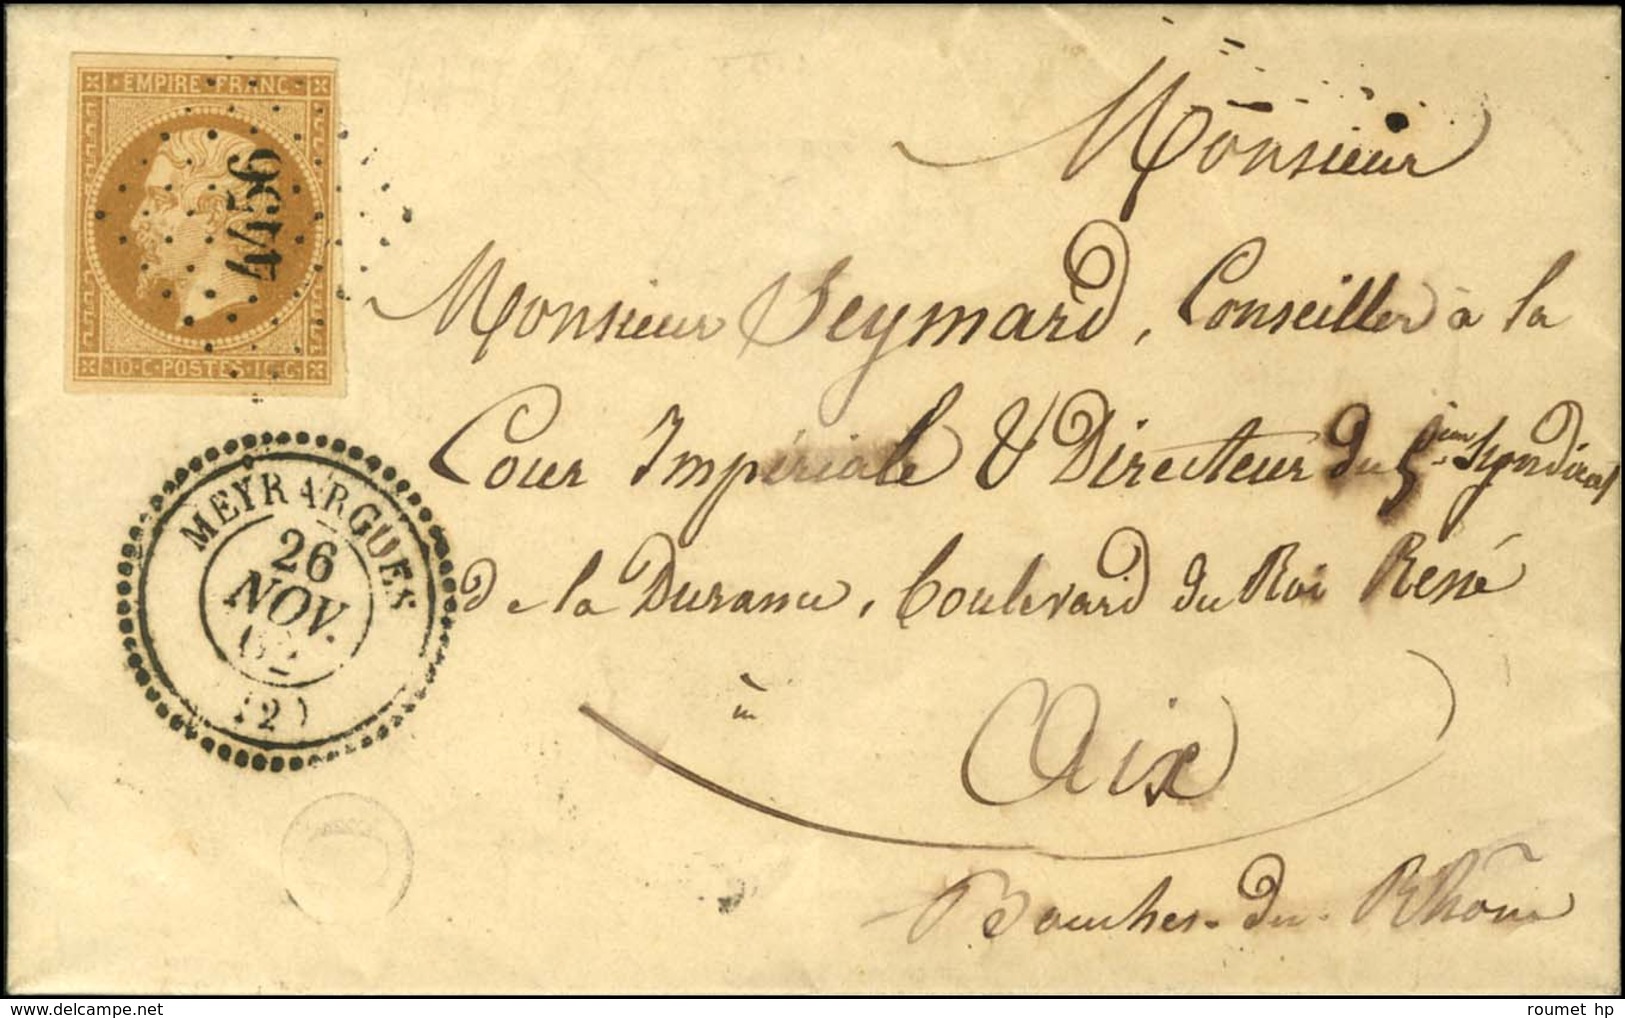 EMPIRE · FRANC ·
4156
10 · C · POSTES · 10 · C ·
Monsieur
Monsieur Seymard, Conseiller à la
Cour Impériale & Directeur du 5ième Syndicat
de la Durance, boulevard du Roi René
à
Aix
Bouches-du-Rhône
MEYRARGUES
26
NOV.
62
(12)
roumet hp